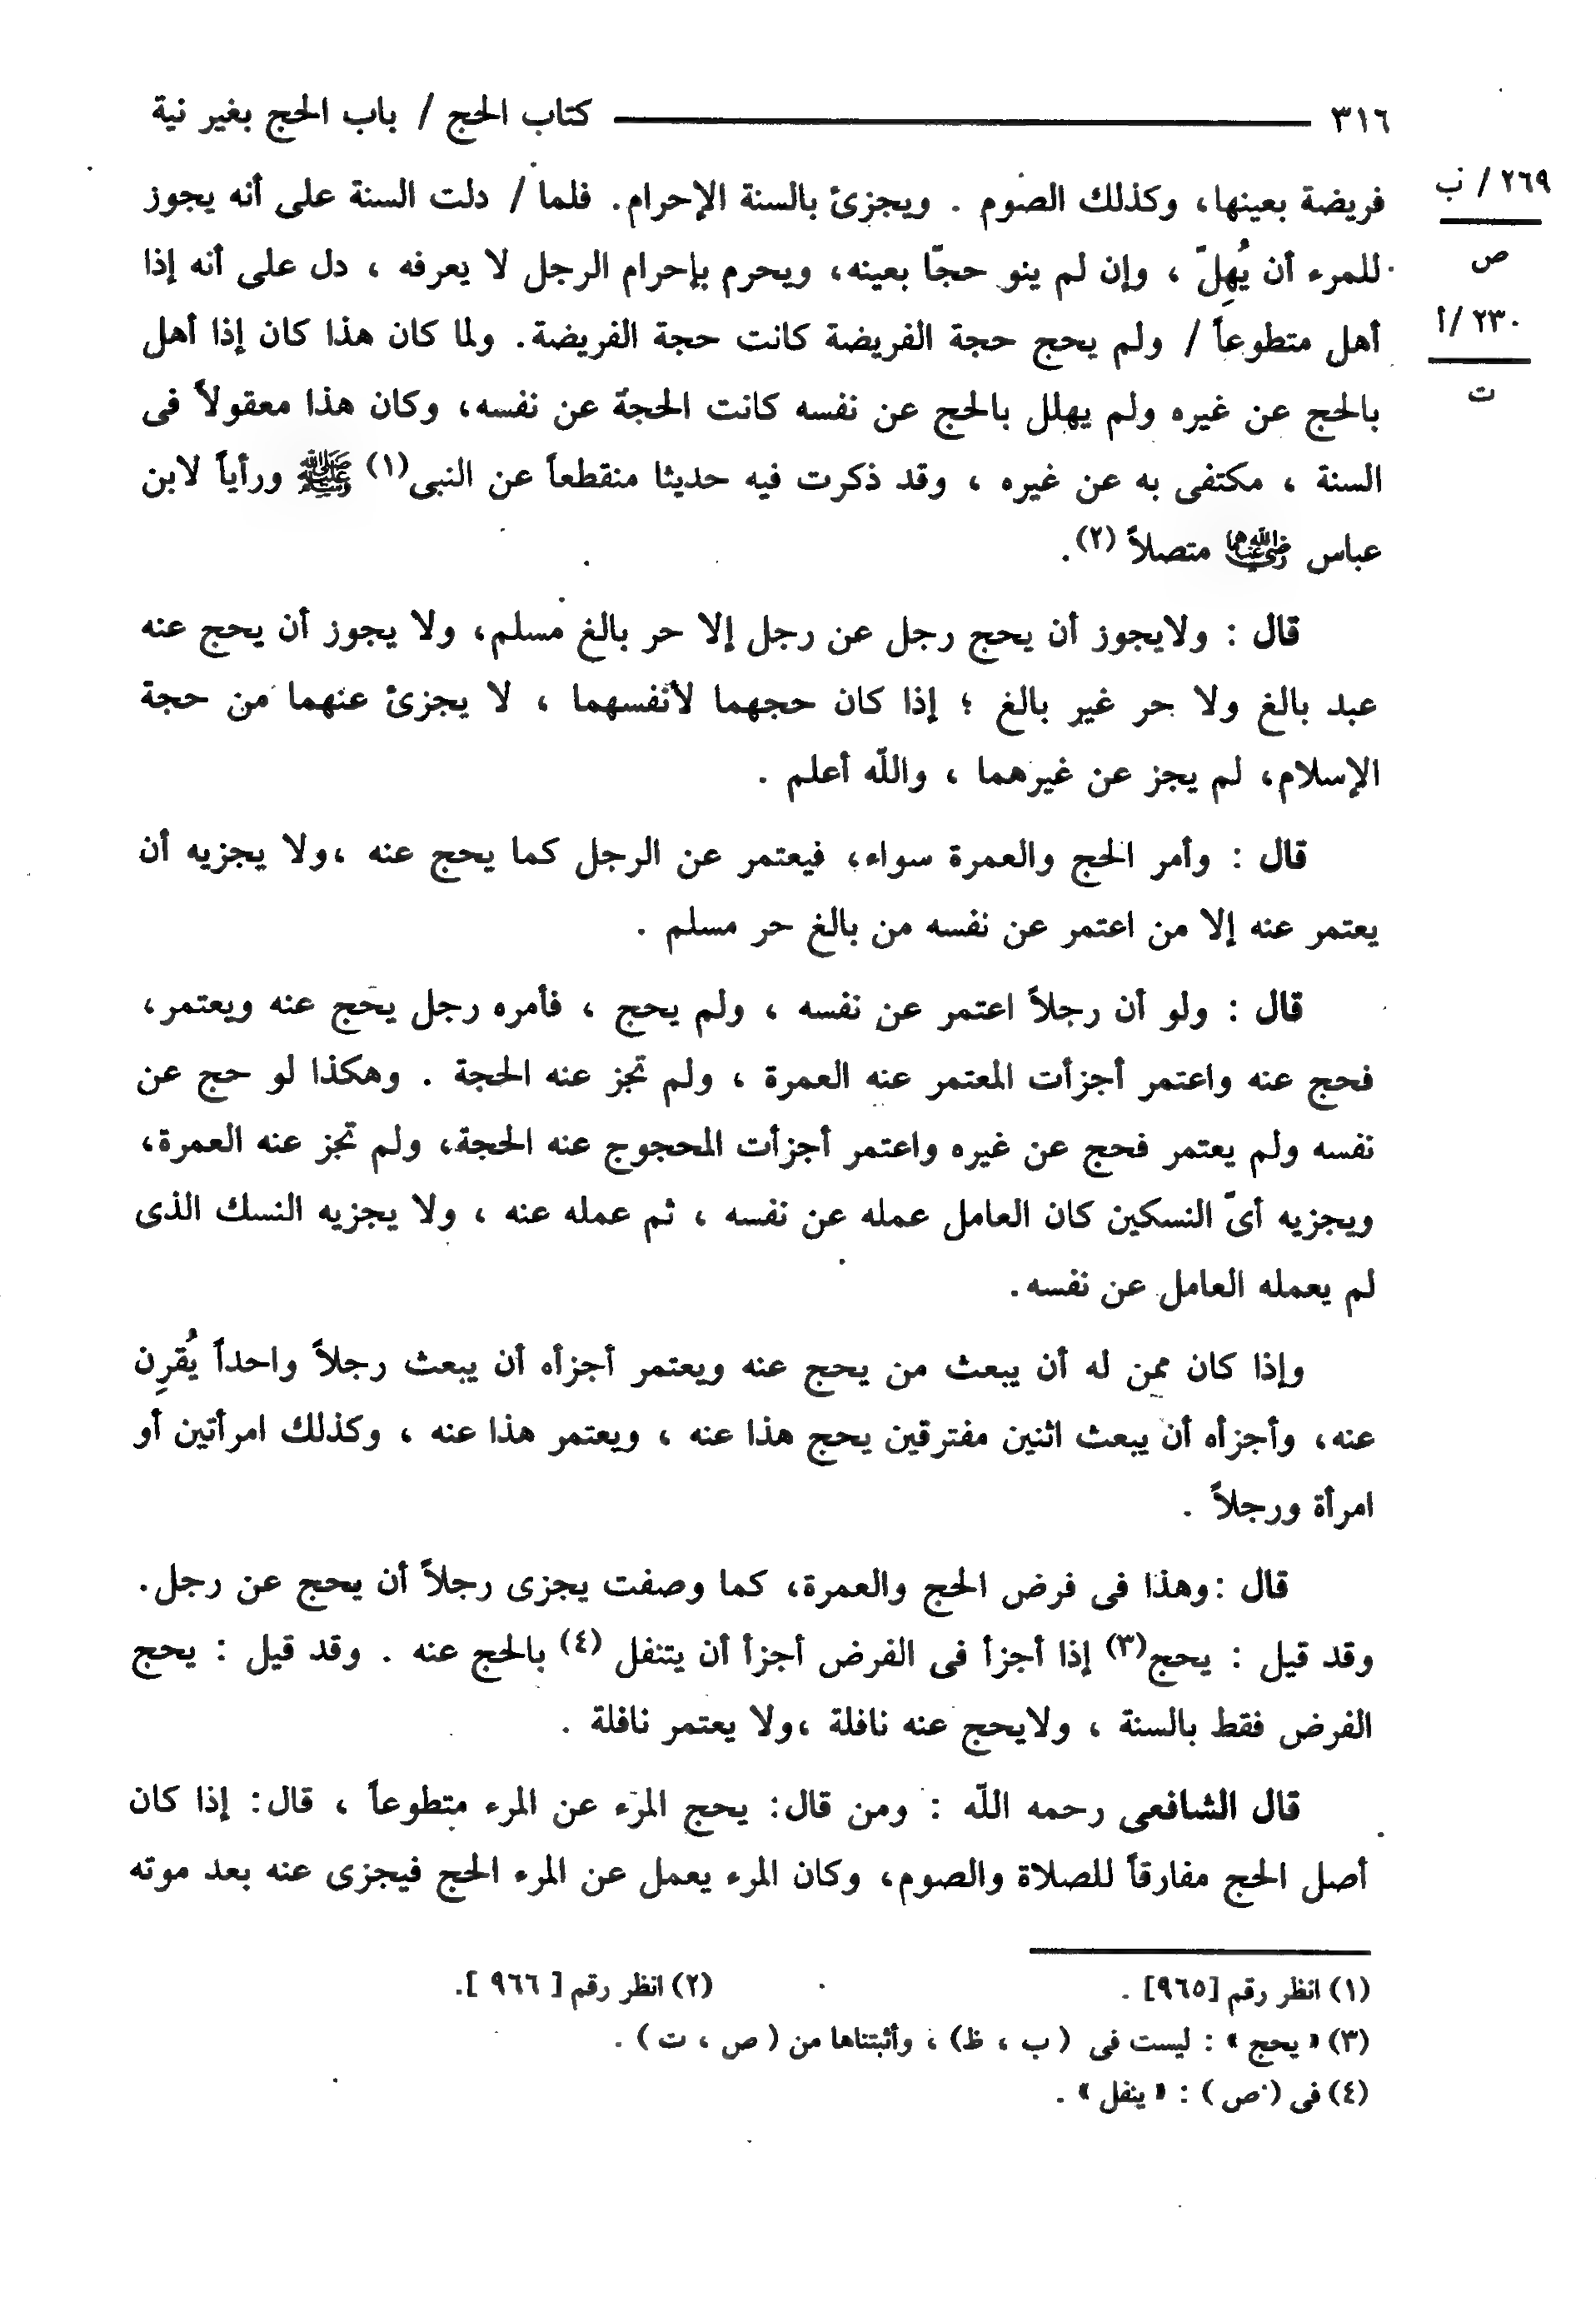 ٣١٦ كتاب الحج / باب الحج بغير نية
٢٦٩ / ب
ص
٢٣٠ / أ
ت
فريضة بعينها، وكذلك الصوم . ويجزئ بالسنة الإحرام. فلما / دلت السنة على أنه يجوز
للمرء أن يُهِلّ ، وإن لم ينو حجّا بعينه، ويحرم بإحرام الرجل لا يعرفه ، دل على أنه إذا
أهل متطوعاً / ولم يحج حجة الفريضة كانت حجة الفريضة. ولما كان هذا كان إذا أهل
بالحج عن غيره ولم يهلل بالحج عن نفسه كانت الحجة عن نفسه، وكان هذا معقولاً فى
السنة ، مكتفى به عن غيره ، وقد ذكرت فيه حديثا منقطعاً عن النبى(١) ﷺ ورأياً لابن
عباس رضي الله عنهما متصلاً (٢).
قال : ولايجوز أن يحج رجل عن رجل إلا حر بالغ مسلم، ولا يجوز أن يحج عنه
عبد بالغ ولا حر غير بالغ ؛ إذا كان حجهما لأنفسهما ، لا يجزئ عنهما من حجة
الإسلام، لم يجز عن غيرهما ، واللّه أعلم .
قال : وأمر الحج والعمرة سواء، فيعتمر عن الرجل كما يحج عنه ،ولا يجزيه أن
يعتمر عنه إلا من اعتمر عن نفسه من بالغ حر مسلم .
قال : ولو أن رجلاً اعتمر عن نفسه ، ولم يحج ، فأمره رجل يحج عنه ويعتمر،
فحج عنه واعتمر أجزأت المعتمر عنه العمرة ، ولم تجز عنه الحجة . وهكذا لو حج عن
نفسه ولم يعتمر فحج عن غيره واعتمر أجزأت المحجوج عنه الحجة، ولم تجز عنه العمرة،
ويجزيه أىّ النسكين كان العامل عمله عن نفسه ، ثم عمله عنه ، ولا يجزيه النسك الذى
لم يعمله العامل عن نفسه.
وإذا كان ممن له أن يبعث من يحج عنه ويعتمر أجزأه أن يبعث رجلاً واحداً يُقرِن
عنه، وأجزأه أن يبعث اثنين مفترقين يحج هذا عنه ، ويعتمر هذا عنه ، وكذلك امرأتين أو
امرأة ورجلاً .
قال :وهذا فى فرض الحج والعمرة، كما وصفت يجزى رجلاً أن يحج عن رجل.
وقد قيل : يحج(٣) إذا أجزأ فى الفرض أجزأ أن يتنفل (٤) بالحج عنه . وقد قيل : يحج
الفرض فقط بالسنة ، ولايحج عنه نافلة ،ولا يعتمر نافلة .
قال الشافعى رحمه اللّه : ومن قال: يحج المرء عن المرء متطوعاً ، قال: إذا كان
أصل الحج مفارقاً للصلاة والصوم، وكان المرء يعمل عن المرء الحج فيجزى عنه بعد موته
(١) انظر رقم [٩٦٥] . (٢) انظر رقم [ ٩٦٦ ].
(٣) « يحج » : ليست فى ( ب ، ظ) ، وأثبتناها من ( ص ، ت ) .
(٤) فى ( ص ) : « ينفل » .